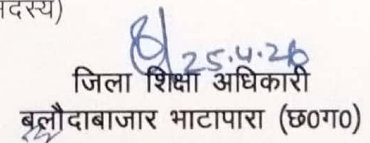 सदस्य)
25.4.26
जिला शिक्षा अधिकारी
बलौदाबाजार भाटापारा (छ0ग0)